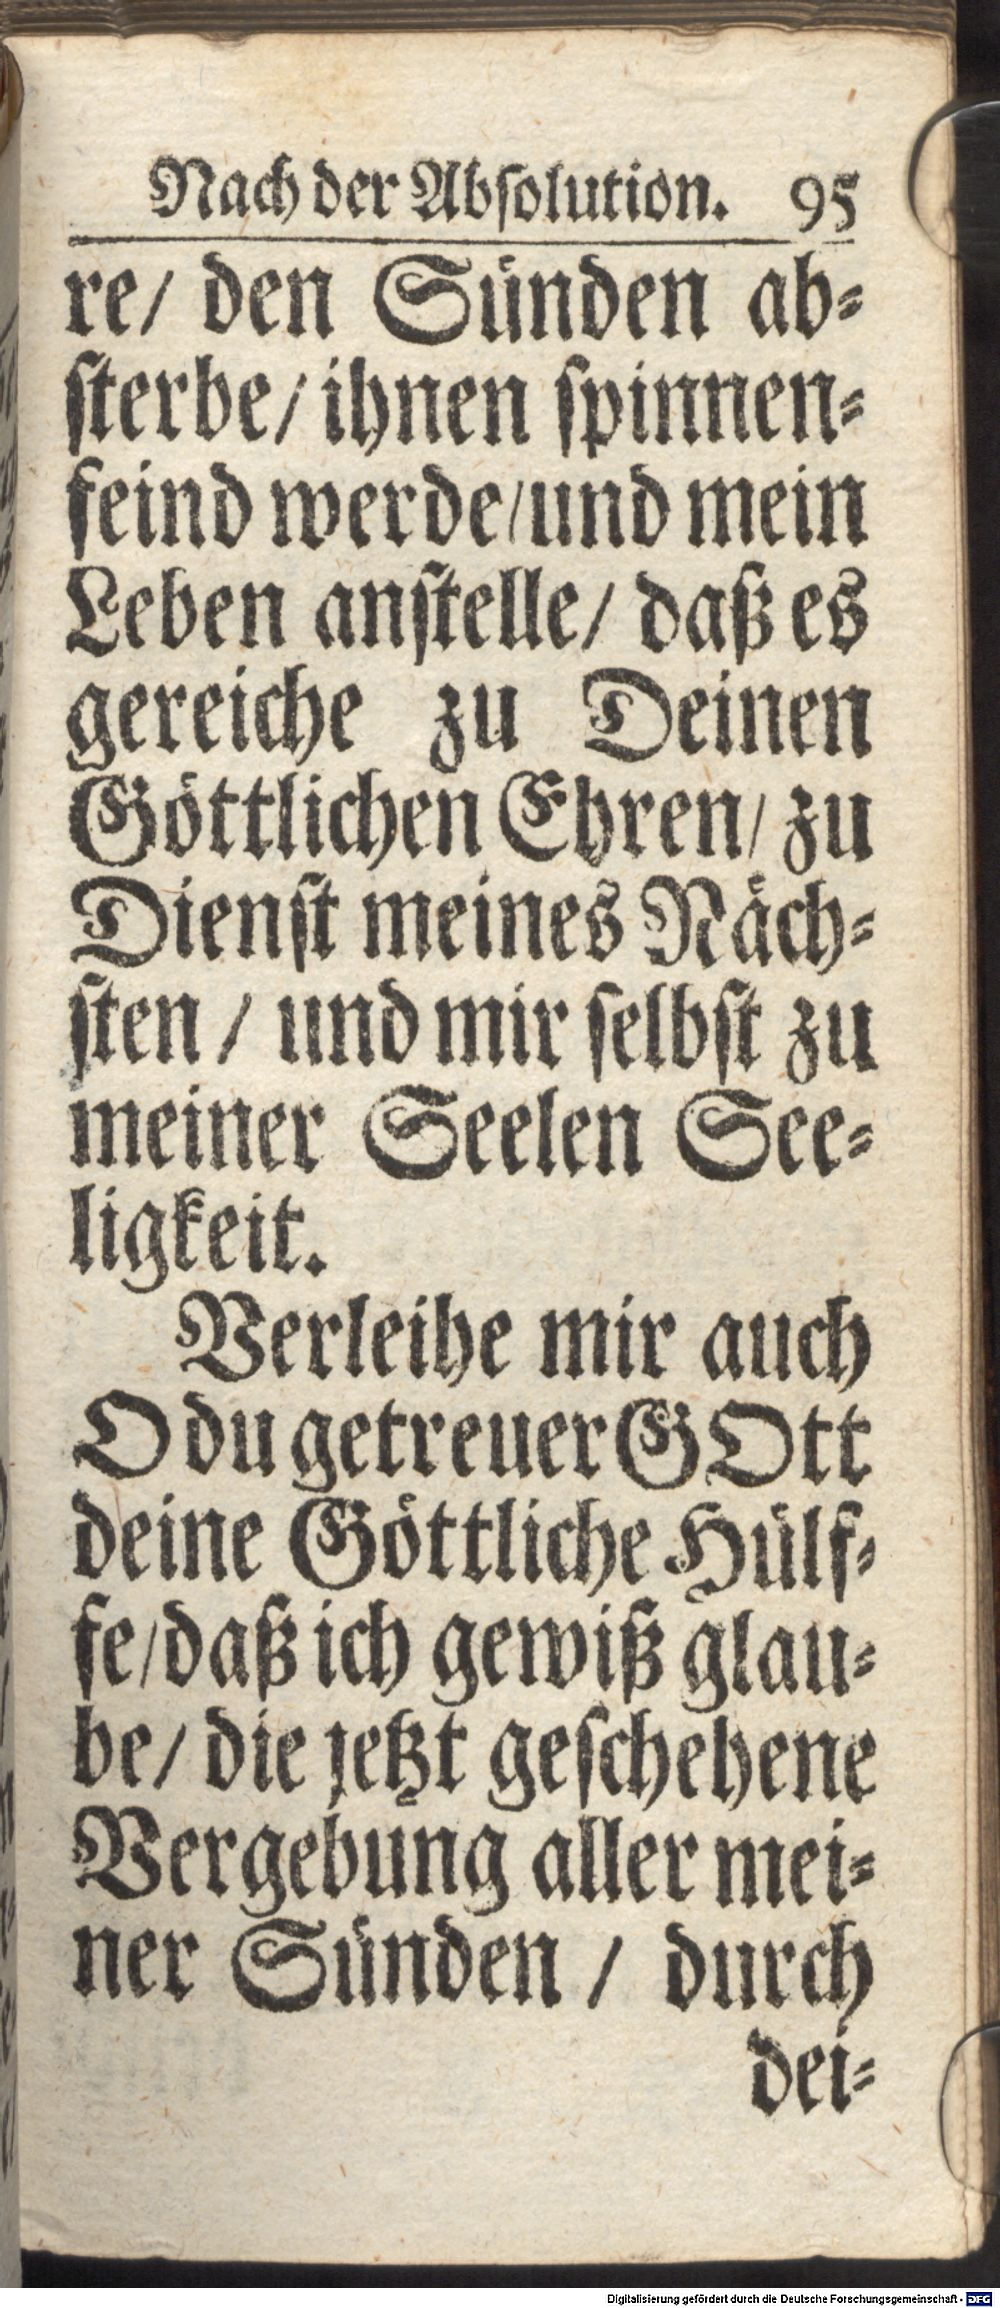 Nach der Absolution. 95
re/ den Sünden ab⸗
sterbe/ ihnen spinnen⸗
feind werde/und mein
Leben anstelle/ daß es
gereiche zu Deinen
Göttlichen Ehren/ zu
Dienst meines Näch⸗
sten / und mir selbst zu
meiner Seelen See⸗
ligkeit.
Verleihe mir auch
O du getreuer GOtt
deine Göttliche Hülf⸗
fe/daß ich gewiß glau⸗
be/ die jetzt geschehene
Vergebung aller mei⸗
ner Sünden / durch
dei⸗
Digitalisierung gefördert durch die Deutsche Forschungsgemeinschaft - DFG